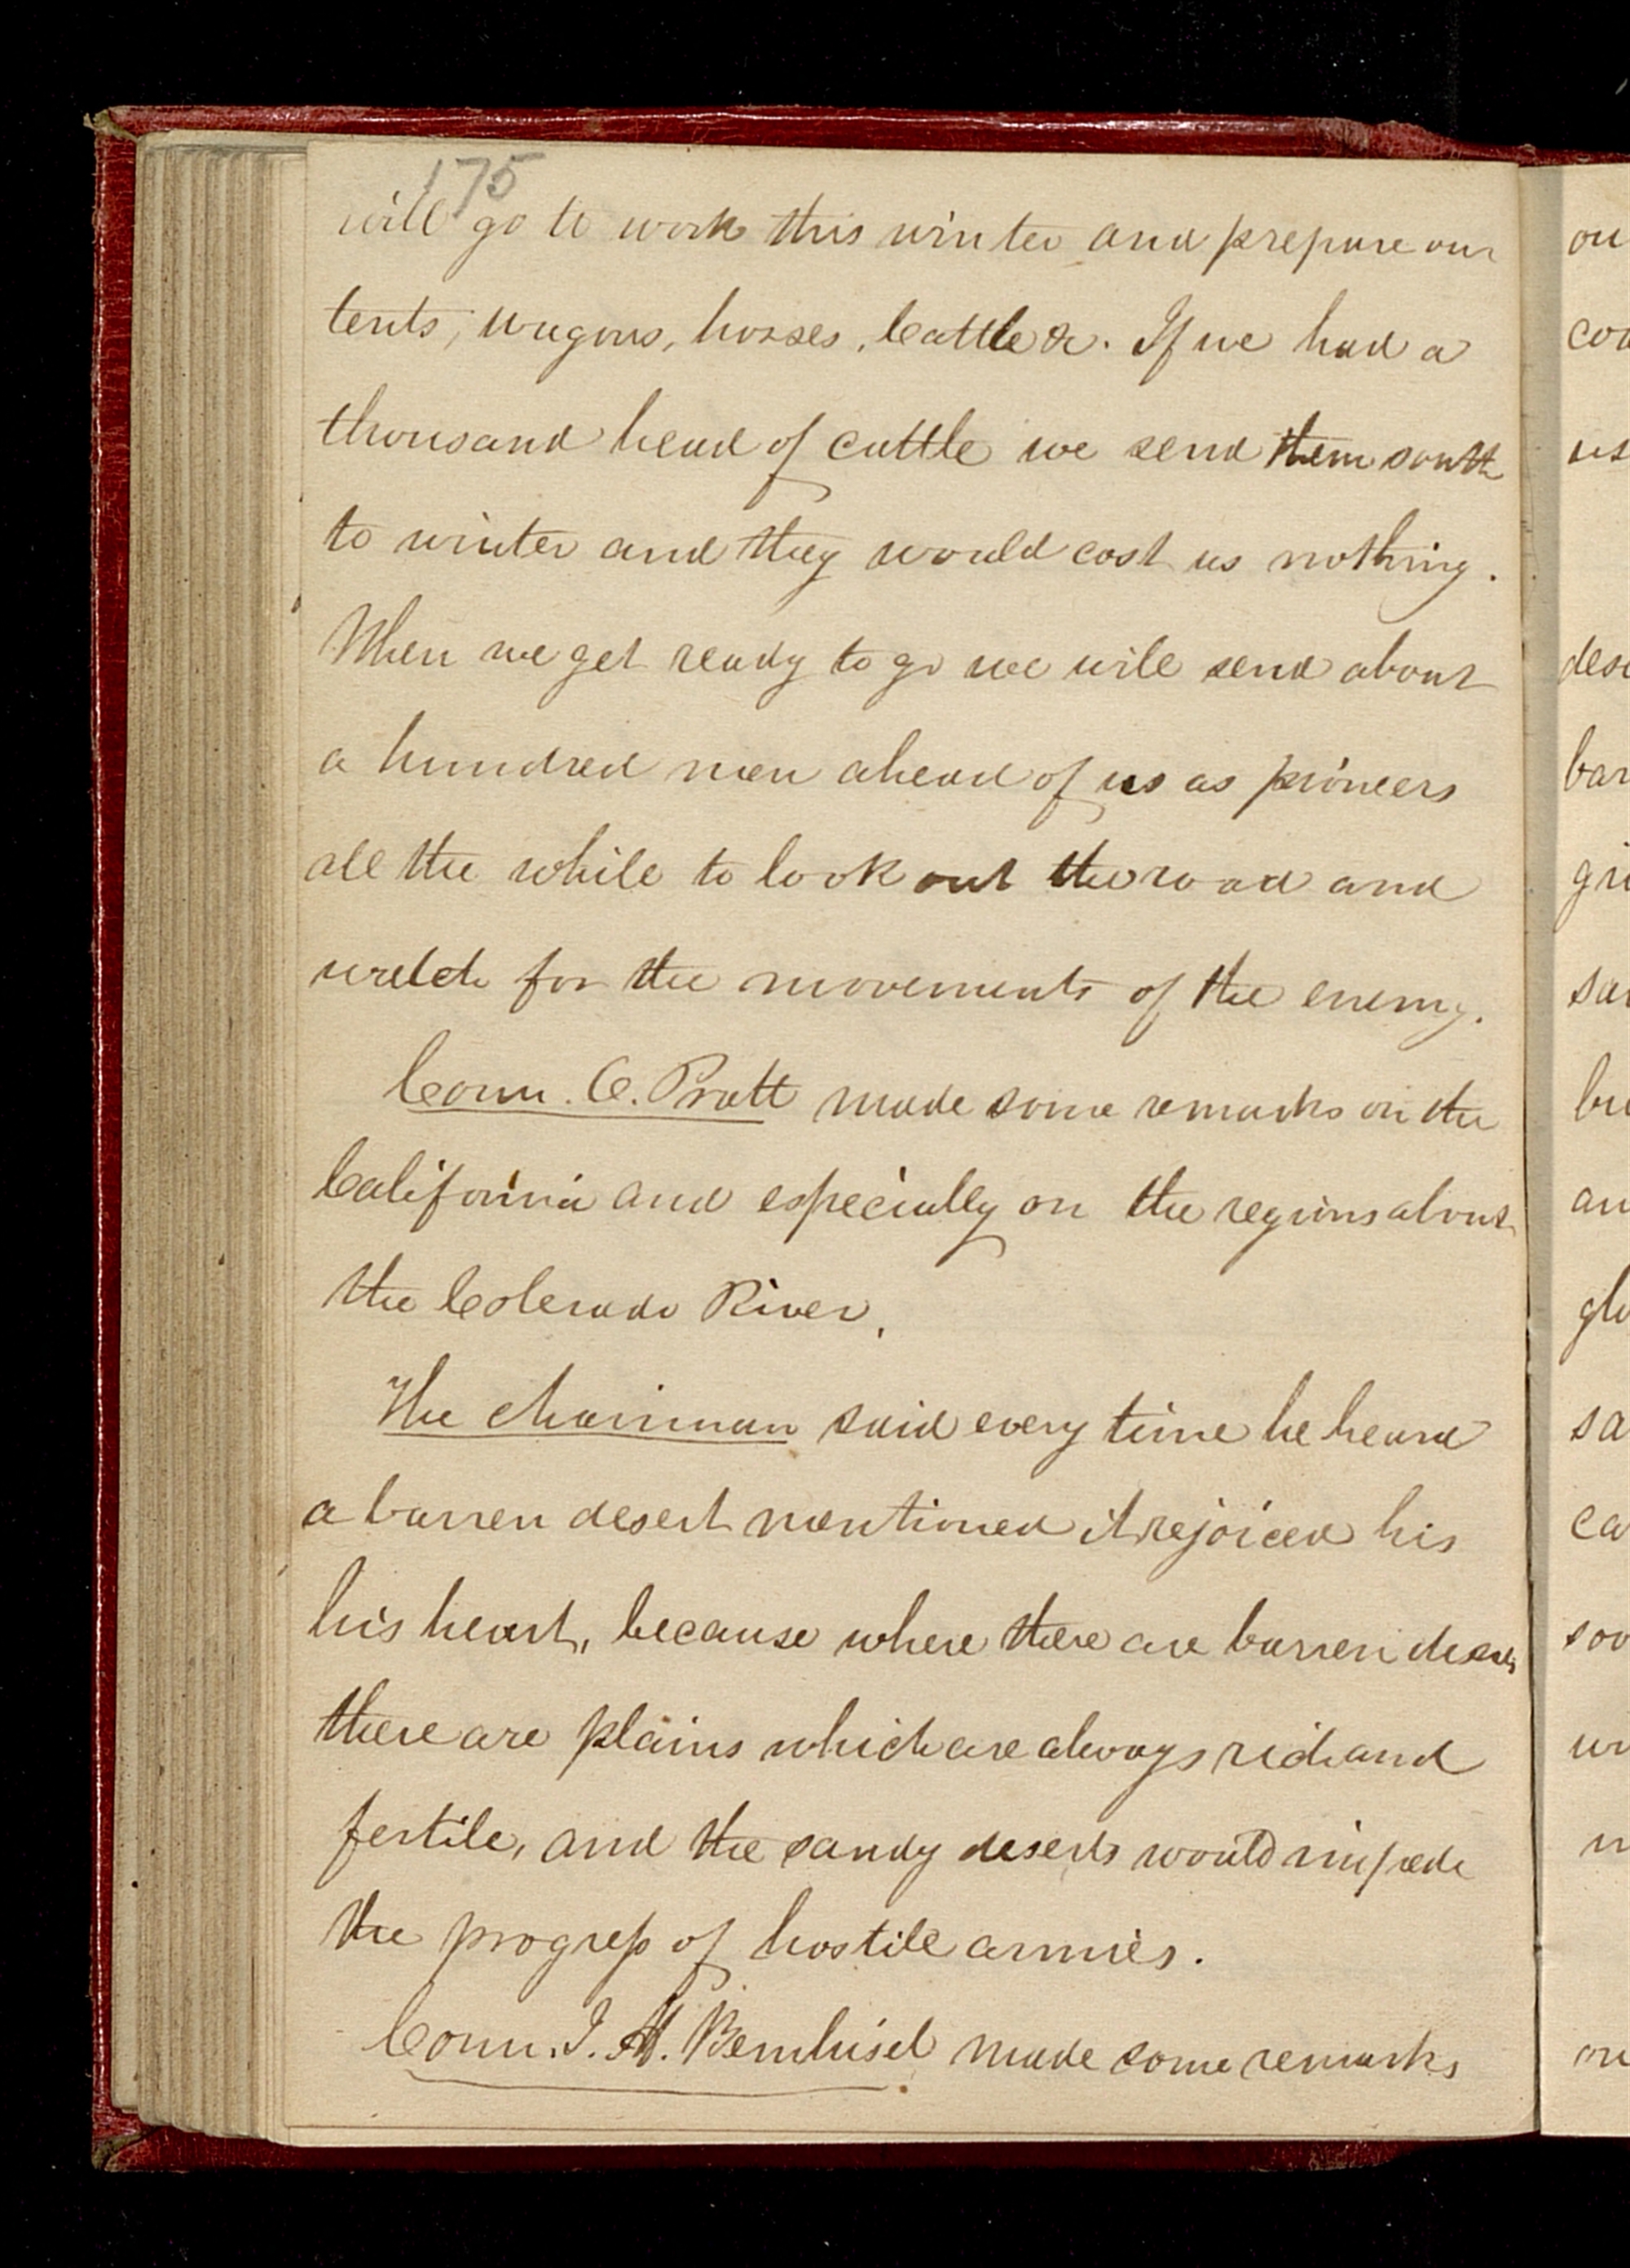 175
will go to work this winter and prepare our
tents, wagons, horses, Cattle &c. If we had a
thousand head of cattle we send them south
to winter and they would cost us nothing.
When we get ready to go we will send about
a hundred men ahead of us as pioneers
all the while to look out the road and
watch for the movements of the enemy.
Coun. O. Pratt made some remarks on the
California and especially on the regions about
the Colerado River.
The chairman said every time he heard
a barren desert mentioned it rejoiced his
his heart, because where there are barren deserts
there are plains which are always rich and
fertile, and the sandy deserts would impede
the progress of hostile armies.
Coun. J. M. Bernhisel made some remarks